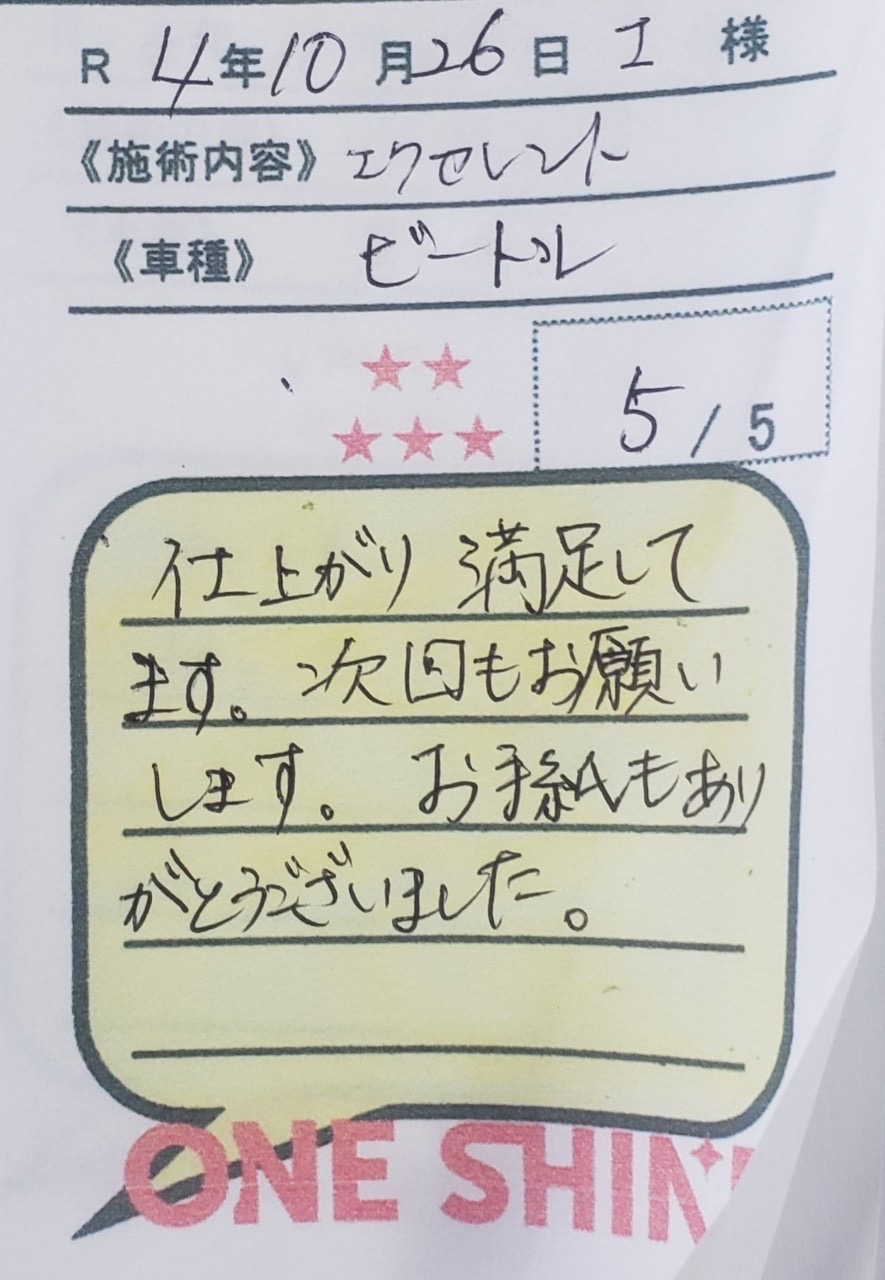 R 4年10月26日 I 様
《施術内容》 エクセレント
《車種》 ビートル
5 / 5
仕上がり 満足して
ます。次回もお願い
します。 お手紙もあり
がとうございました。
ONE SHIN